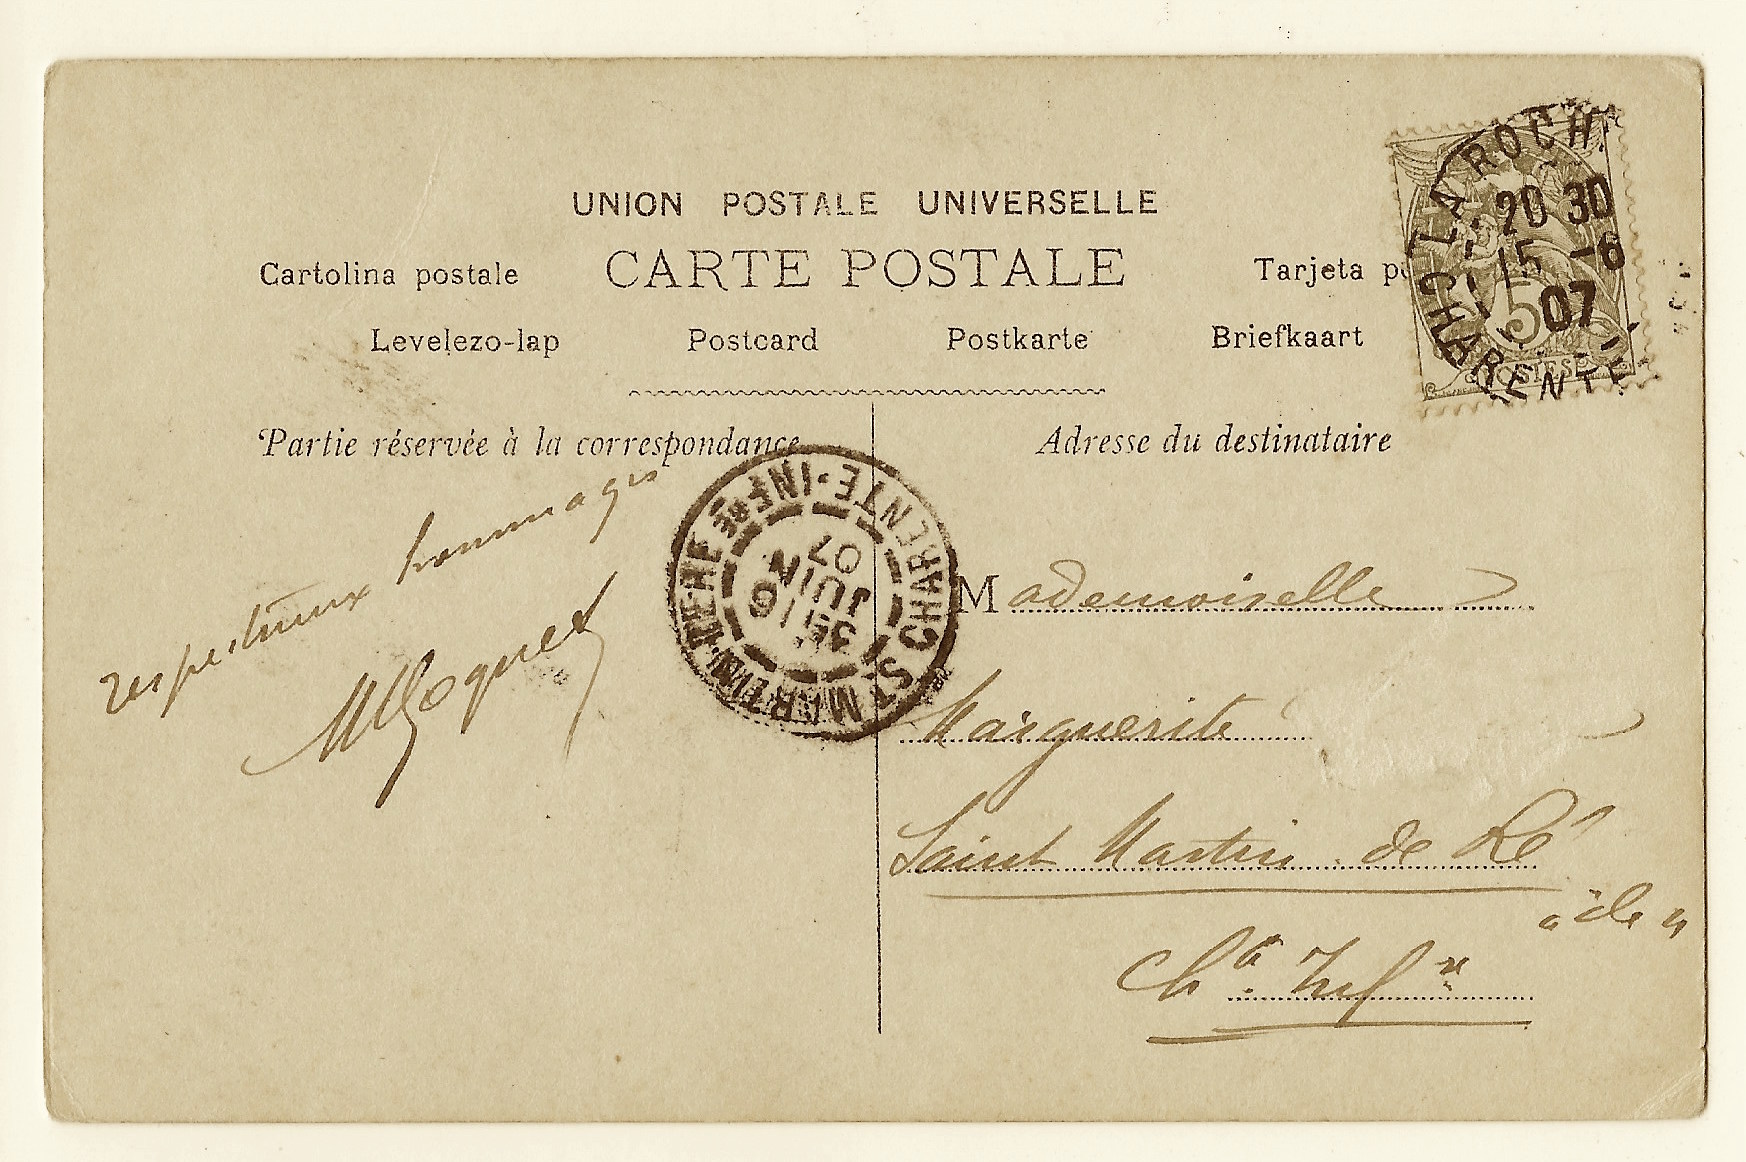 UNION POSTALE UNIVERSELLE
Cartolina postale CARTE POSTALE Tarjeta po
Levelezo-lap Postcard Postkarte Briefkaart
Partie réservée à la correspondance
Adresse du destinataire
respectueux hommages
Mademoiselle
Marguerite
Saint Martin de Ré
"île"
Ch^te Inf^re
LA ROCH.
CHARENTE
20 30
15 -6
07
5
POSTES
ST MARTIN-DE-RE
CHARENTE-INFRE
16
JUIN
07